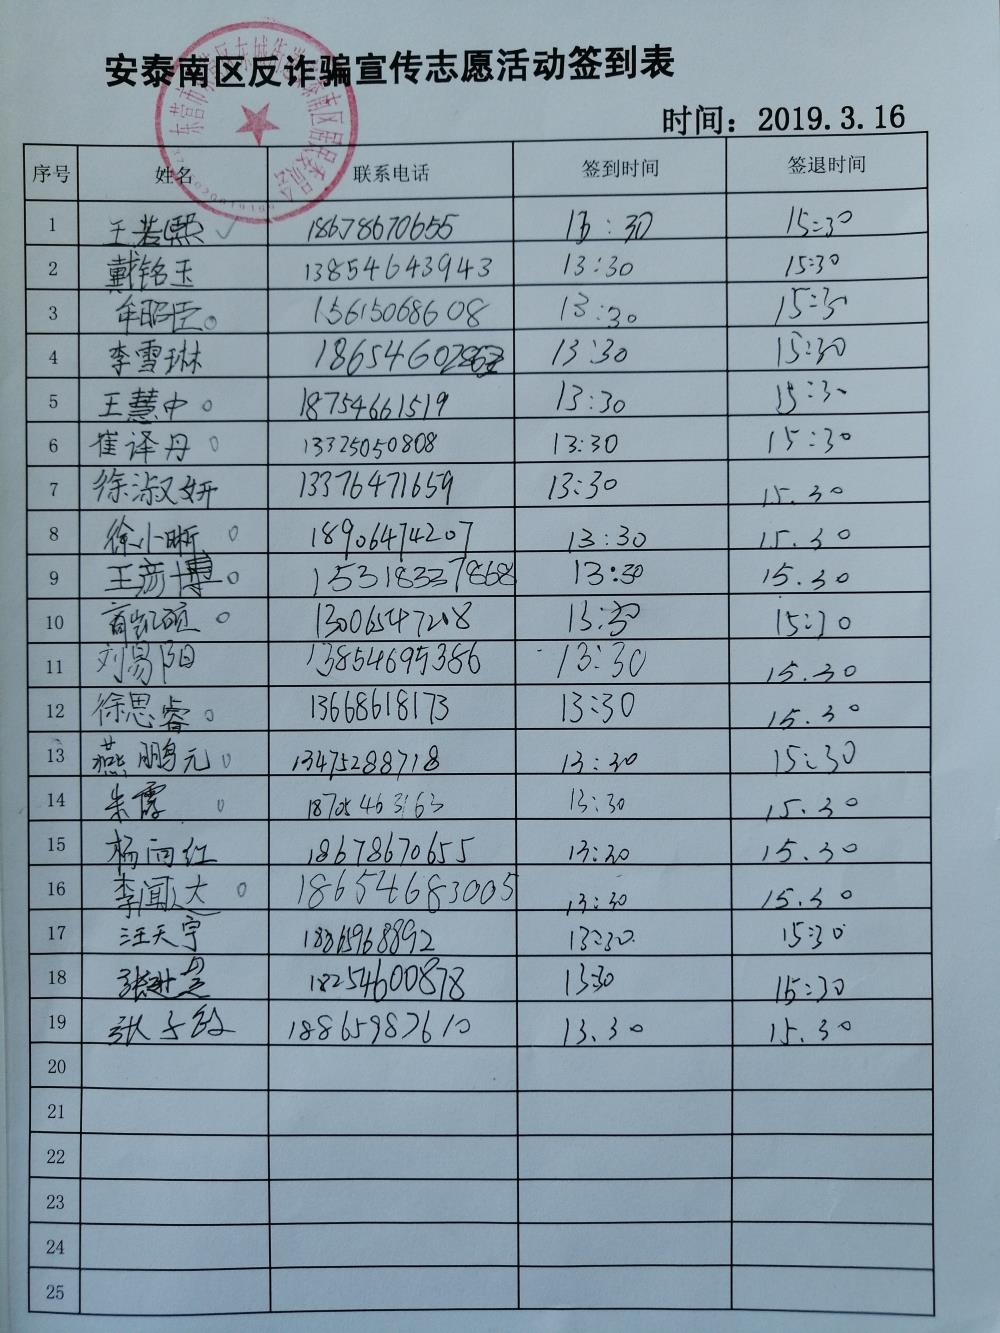 安泰南区反诈骗宣传志愿活动签到表
时间：2019.3.16
序号 姓名 联系电话 签到时间 签退时间
1 王若熙 18678670655 13:30 15:30
2 戴铭玉 13854643943 13:30 15:30
3 牟昭臣 15615068608 13:30 15:30
4 李雪琳 13:30 15:30
5 王慧中 18754661519 13:30 15:30
6 崔译丹 13325050808 13:30 15:30
7 徐淑妍 13376471659 13:30 15.30
8 徐小晰 18906474207 13:30 15.30
9 王彦博 15318337868 13:30 15.30
10 商凯硕 1306547208 13:30 15:30
11 刘易阳 13854695386 13:30 15.30
12 徐思睿 13668618173 13:30 15.30
13 燕鹏元 13475288718 13:30 15:30
14 朱霞 18705463163 13:30 15.30
15 杨向红 18678670655 13:30 15.30
16 李闻达 18654683005 13:30 15.30
17 汪天宇 18865968892 13:30 15:30
18 18254600878 13:30 15:30
19 18865987610 13.30 15.30
20
21
22
23
24
25